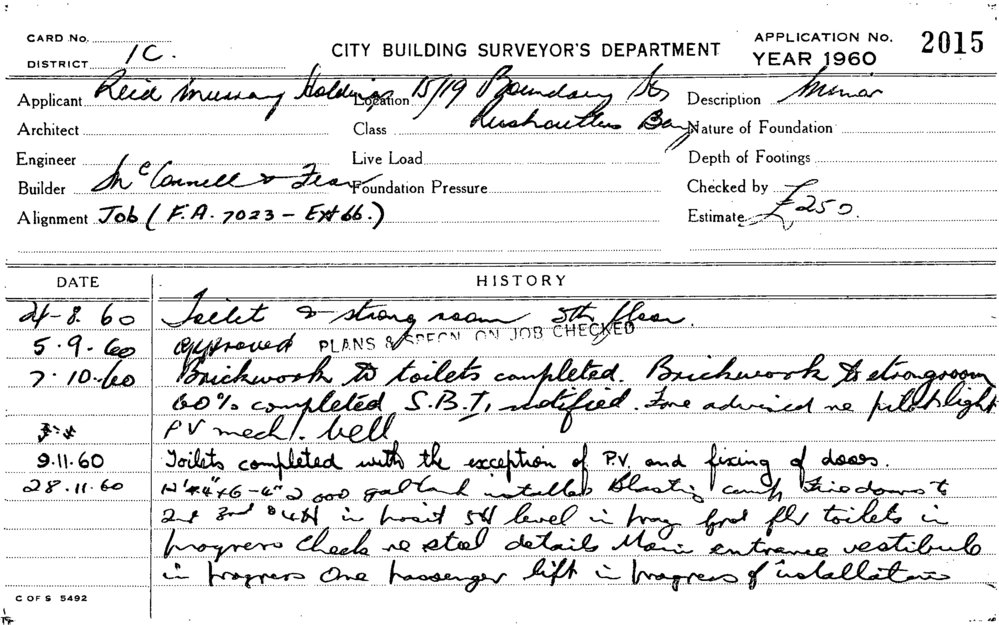 CARD No.
DISTRICT 1C.
CITY BUILDING SURVEYOR'S DEPARTMENT
APPLICATION No. 2015
YEAR 1960
Applicant Reid Murray Holdings Location 15/19 Boundary St. Description Minor
Architect Class Rushcutters Bay Nature of Foundation
Engineer Live Load Depth of Footings
Builder McConnell & Foundation Pressure Checked by
Alignment Job (F.A. 7023 - Ext 66.) Estimate £250.
DATE HISTORY
24-8.60 Toilet & strong room 5th floor.
5.9.60 approved PLANS & SPECN ON JOB CHECKED
7.10.60 Brickwork to toilets completed. Brickwork to strongroom
60% completed S.B.I. notified. advised re pilot light
PV mech. bell
9.11.60 Toilets completed with the exception of P.V. and fixing of doors.
28.11.60 2000 gal tank installed Fire doors to
2nd 3rd & 4th in posit 5th level in prog flr toilets in
progress Check re steel details Main entrance vestibule
in progress One passenger lift in progress of installation
C OF S 5492